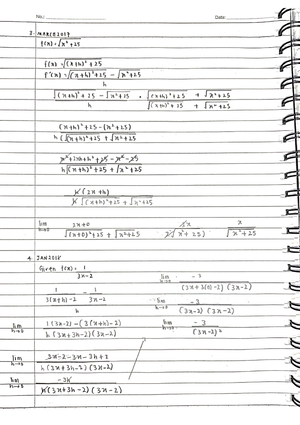 No.: Date:
3. MARCH 2017
f(x) = √x²+25
f(x) = √(x+h)²+25
f'(x) = √(x+h)²+25 − √x²+25
h
√(x+h)²+25 − √x²+25 × √(x+h)²+25 + √x²+25
h √(x+h)²+25 + √x²+25
(x+h)²+25 − (x²+25)
h (√(x+h)²+25 + √x²+25
x²+2xh+h²+25 − x² − 25
h √(x+h)²+25 + √x²+25
h (2x+h)
h √(x+h)²+25 + √x²+25
lim h→0 2x+0 2x x
√(x+0)²+25 + √x²+25 2(√x²+25) √x²+25
4. JAN 2018
Given f(x) = 1
3x−2
1 − 1
3(x+h)−2 3x−2
lim h→0 1(3x−2) − (3(x+h)−2)
h (3x+3h−2)(3x−2)
lim h→0 3x−2−3x−3h+2
h (3x+3h−2)(3x−2)
lim h→0 −3h
h (3x+3h−2)(3x−2)
lim h→0 −3
(3x+3(0)−2)(3x−2)
lim h→0 −3
(3x−2)(3x−2)
lim h→0 −3
(3x−2)²